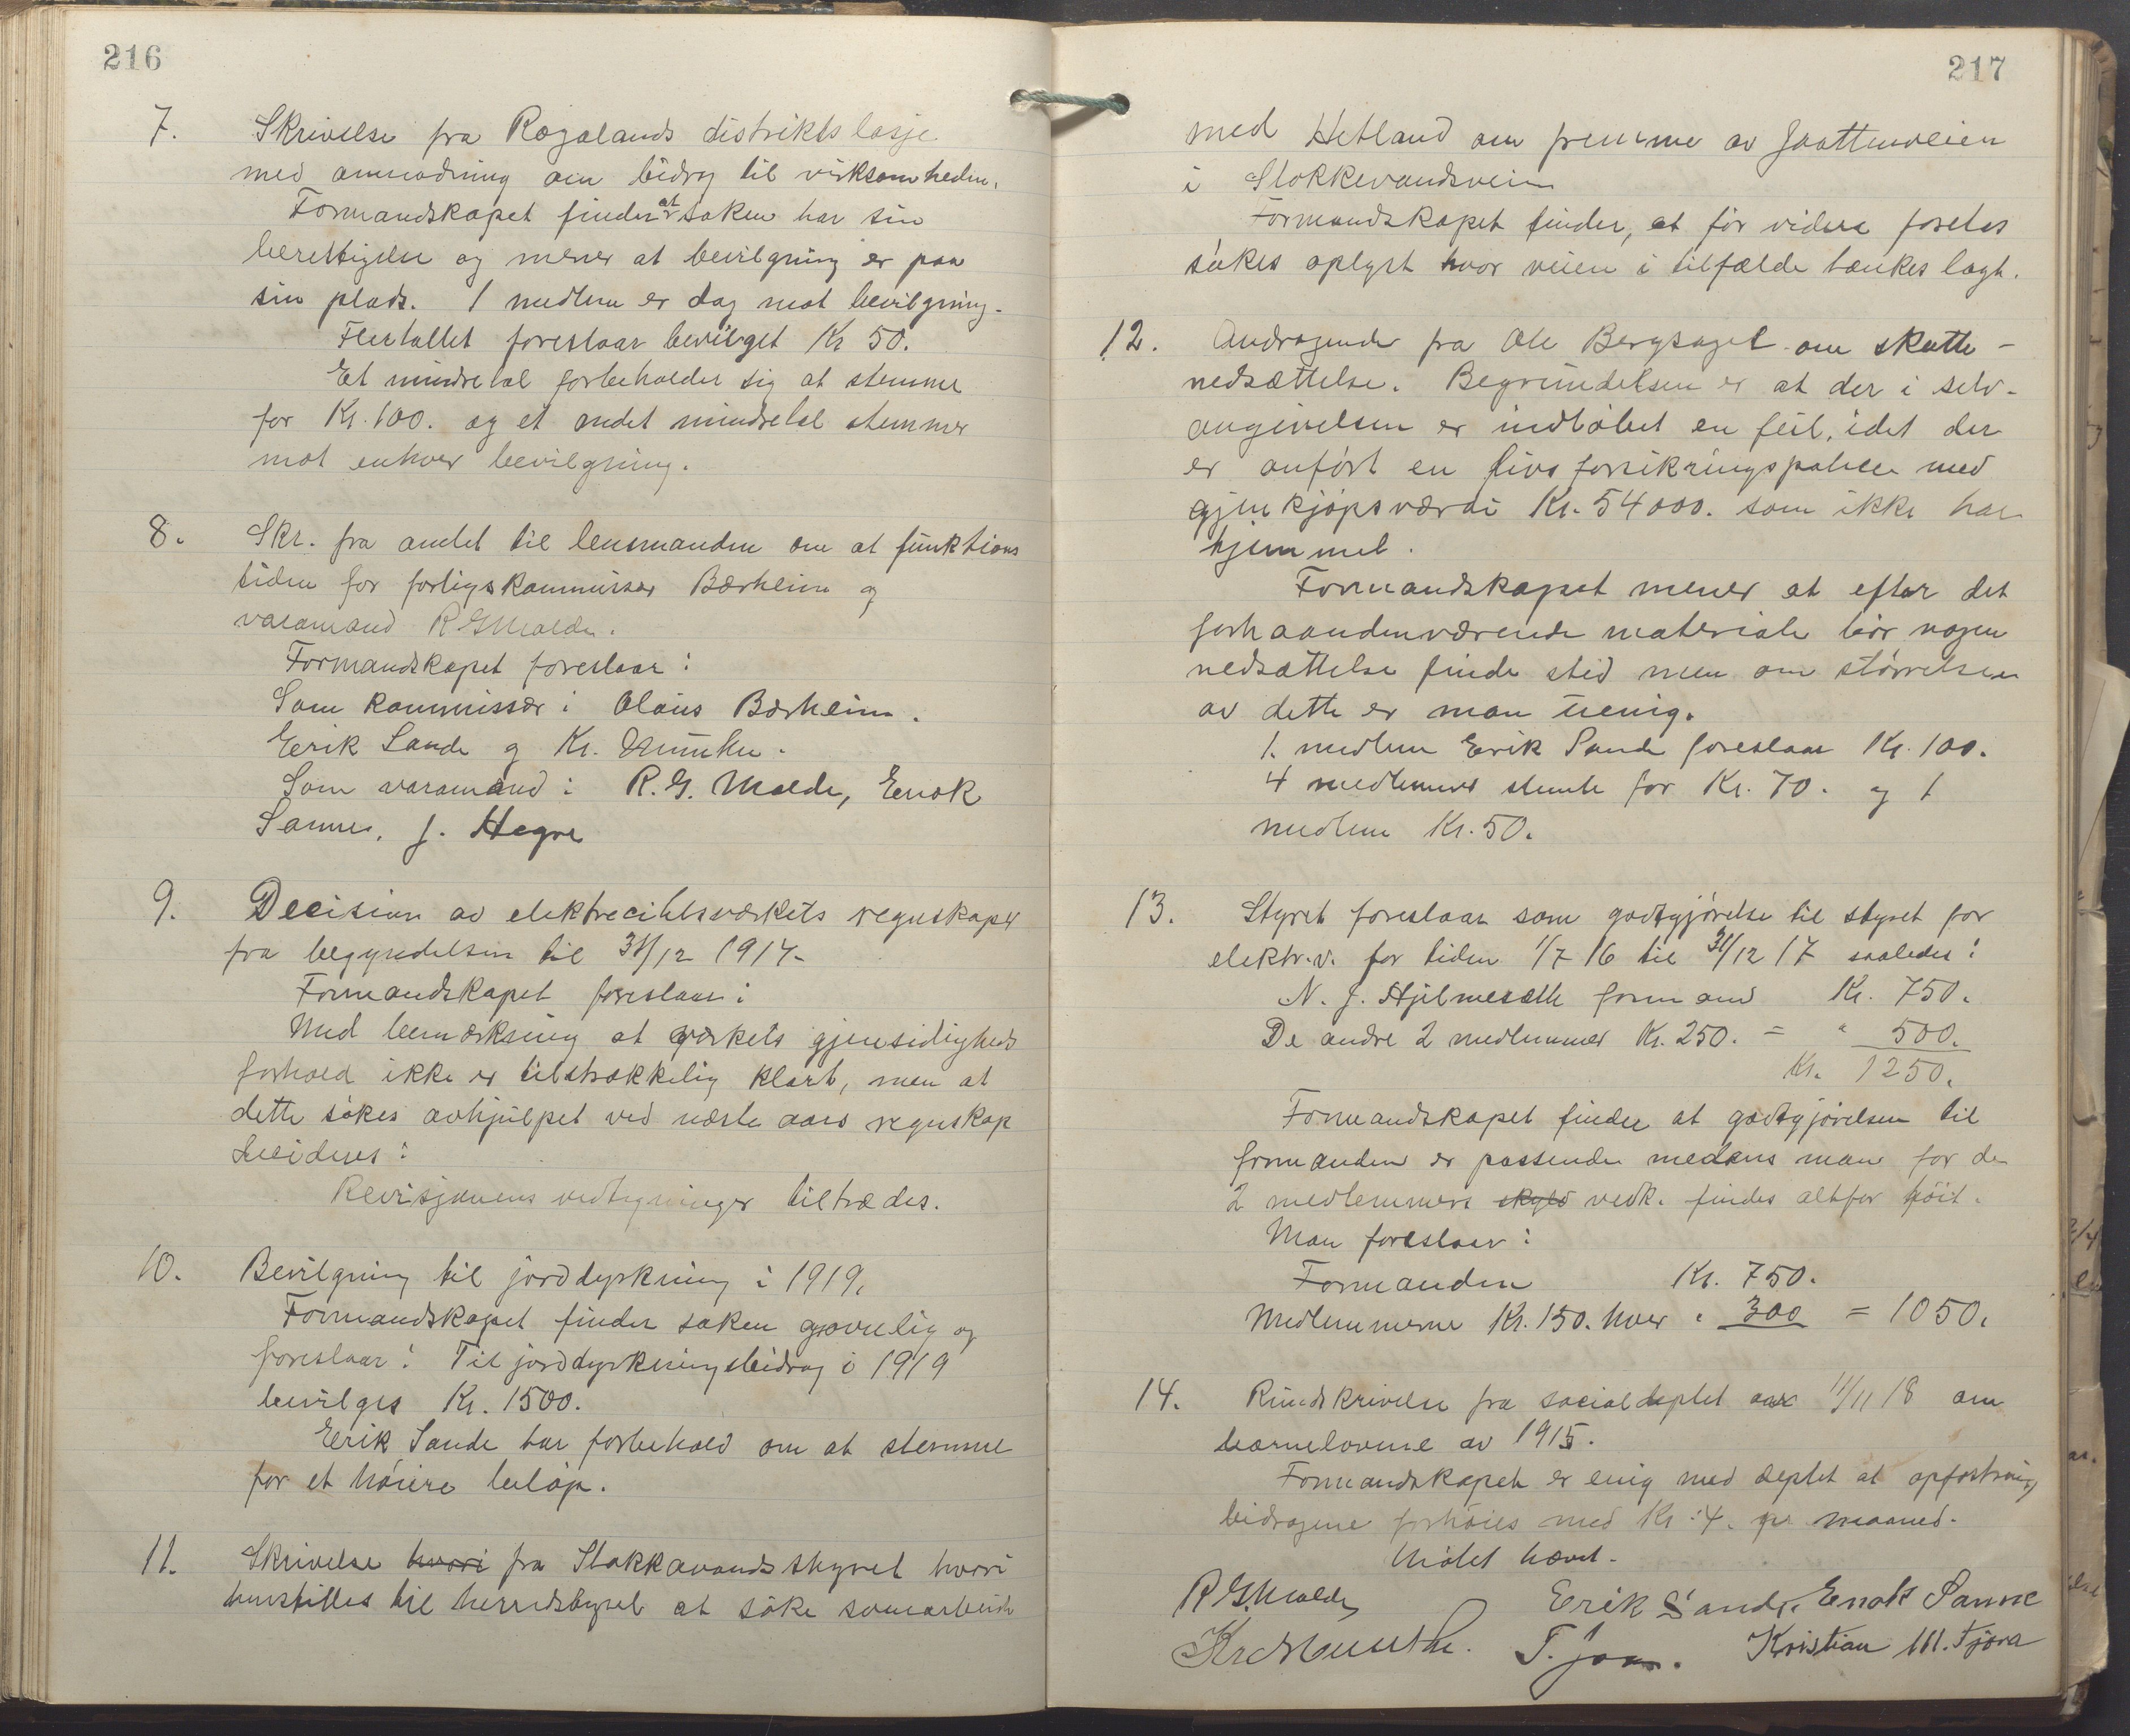 216
7. Skrivelse fra Rogalands distriktslosje
med anmodning om bidrag til virksomheden.
Formandskapet finder at saken har sin
berettigelse og mener at bevilgning er paa
sin plads. 1 medlem er dog mot bevilgning.
Flertallet foreslaar bevilget Kr 50.
Et mindretal forbeholder sig at stemme
for Kr. 100. og et andet mindretal stemmer
mot enhver bevilgning.
8. Skr. fra amtet til lensmanden om at funktions
tiden for forligskommissær Bærheim og
varamand R G Malde.
Formandskapet foreslaar:
Som kommissær: Olaus Bærheim.
Erik Sande og Kr. Munthe.
Som varamænd: R. G. Malde, Enok
Sanne, J. Hogre
9. Decision av elektrecitetsværkets regnskaper
fra begyndelsen til 31/12 1917.
Formandskapet foreslaar:
Med bemærkning at værkets gjensidigheds
forhold ikke er tilstrækkelig klart, men at
dette søkes avhjulpet ved næste aars regnskap
decideres:
Revisjonens vedtegninger tiltrædes.
10. Bevilgning til jorddyrkning i 1919.
Formandskapet finder saken gavnlig og
foreslaar: Til jorddyrkningsbidrag i 1919
bevilges Kr. 1500.
Erik Sande tar forbehold om at stemme
for et høiere beløp.
11. Skrivelse hvori fra Stokkavandsstyret hvori
henstilles til herredstyret at søke samarbeide
217
med Hetland om fremme av Jaattenveien
i Stokkevandsveien
Formandskapet finder, at før videre foretas
søkes oplyst hvor veien i tilfælde tænkes lagt.
12. Andragende fra Ole Bergsagel om skatte-
nedsættelse. Begrundelsen er at der i selv-
angivelsen er indløbet en feil, idet der
er anført en livsforsikringspolice med
gjenkjøpsværdi Kr. 54000. som ikke har
hjemmel.
Formandskapet mener at efter det
forhaandenværende materiale bør nogen
nedsættelse finde sted men om størrelsen
av dette er man uenig.
1. medlem Erik Sande foreslaar Kr. 100.
4 medlemmer stemte for Kr. 70. og 1
medlem Kr. 50.
13. Styret foreslaar som godtgjørelse til styret for
elektr.v. for tiden 1/7 16 til 31/12 17 saaledes:
N. J. Hjelmesæth formand Kr. 750.
De andre 2 medlemmer Kr. 250. = " 500.
Kr. 1250.
Formandskapet finder at godtgjørelsen til
formanden er passende medens man for de
2 medlemmers skyld vedk. findes altfor høit.
Man foreslaar:
Formanden Kr. 750.
Medlemmerne Kr. 150. hver " 300 = 1050.
14. Rundskrivelse fra socialdeptet av 11/11 18 om
barnelovene av 1915.
Formandskapet er enig med deptet at opfostrings
bidragene forhøies med Kr: 4. pr maaned.
Møtet hævet.
R G. Malde Erik Sande. Enok Sanne
Kr Munthe. T. Kristian M. Tjora